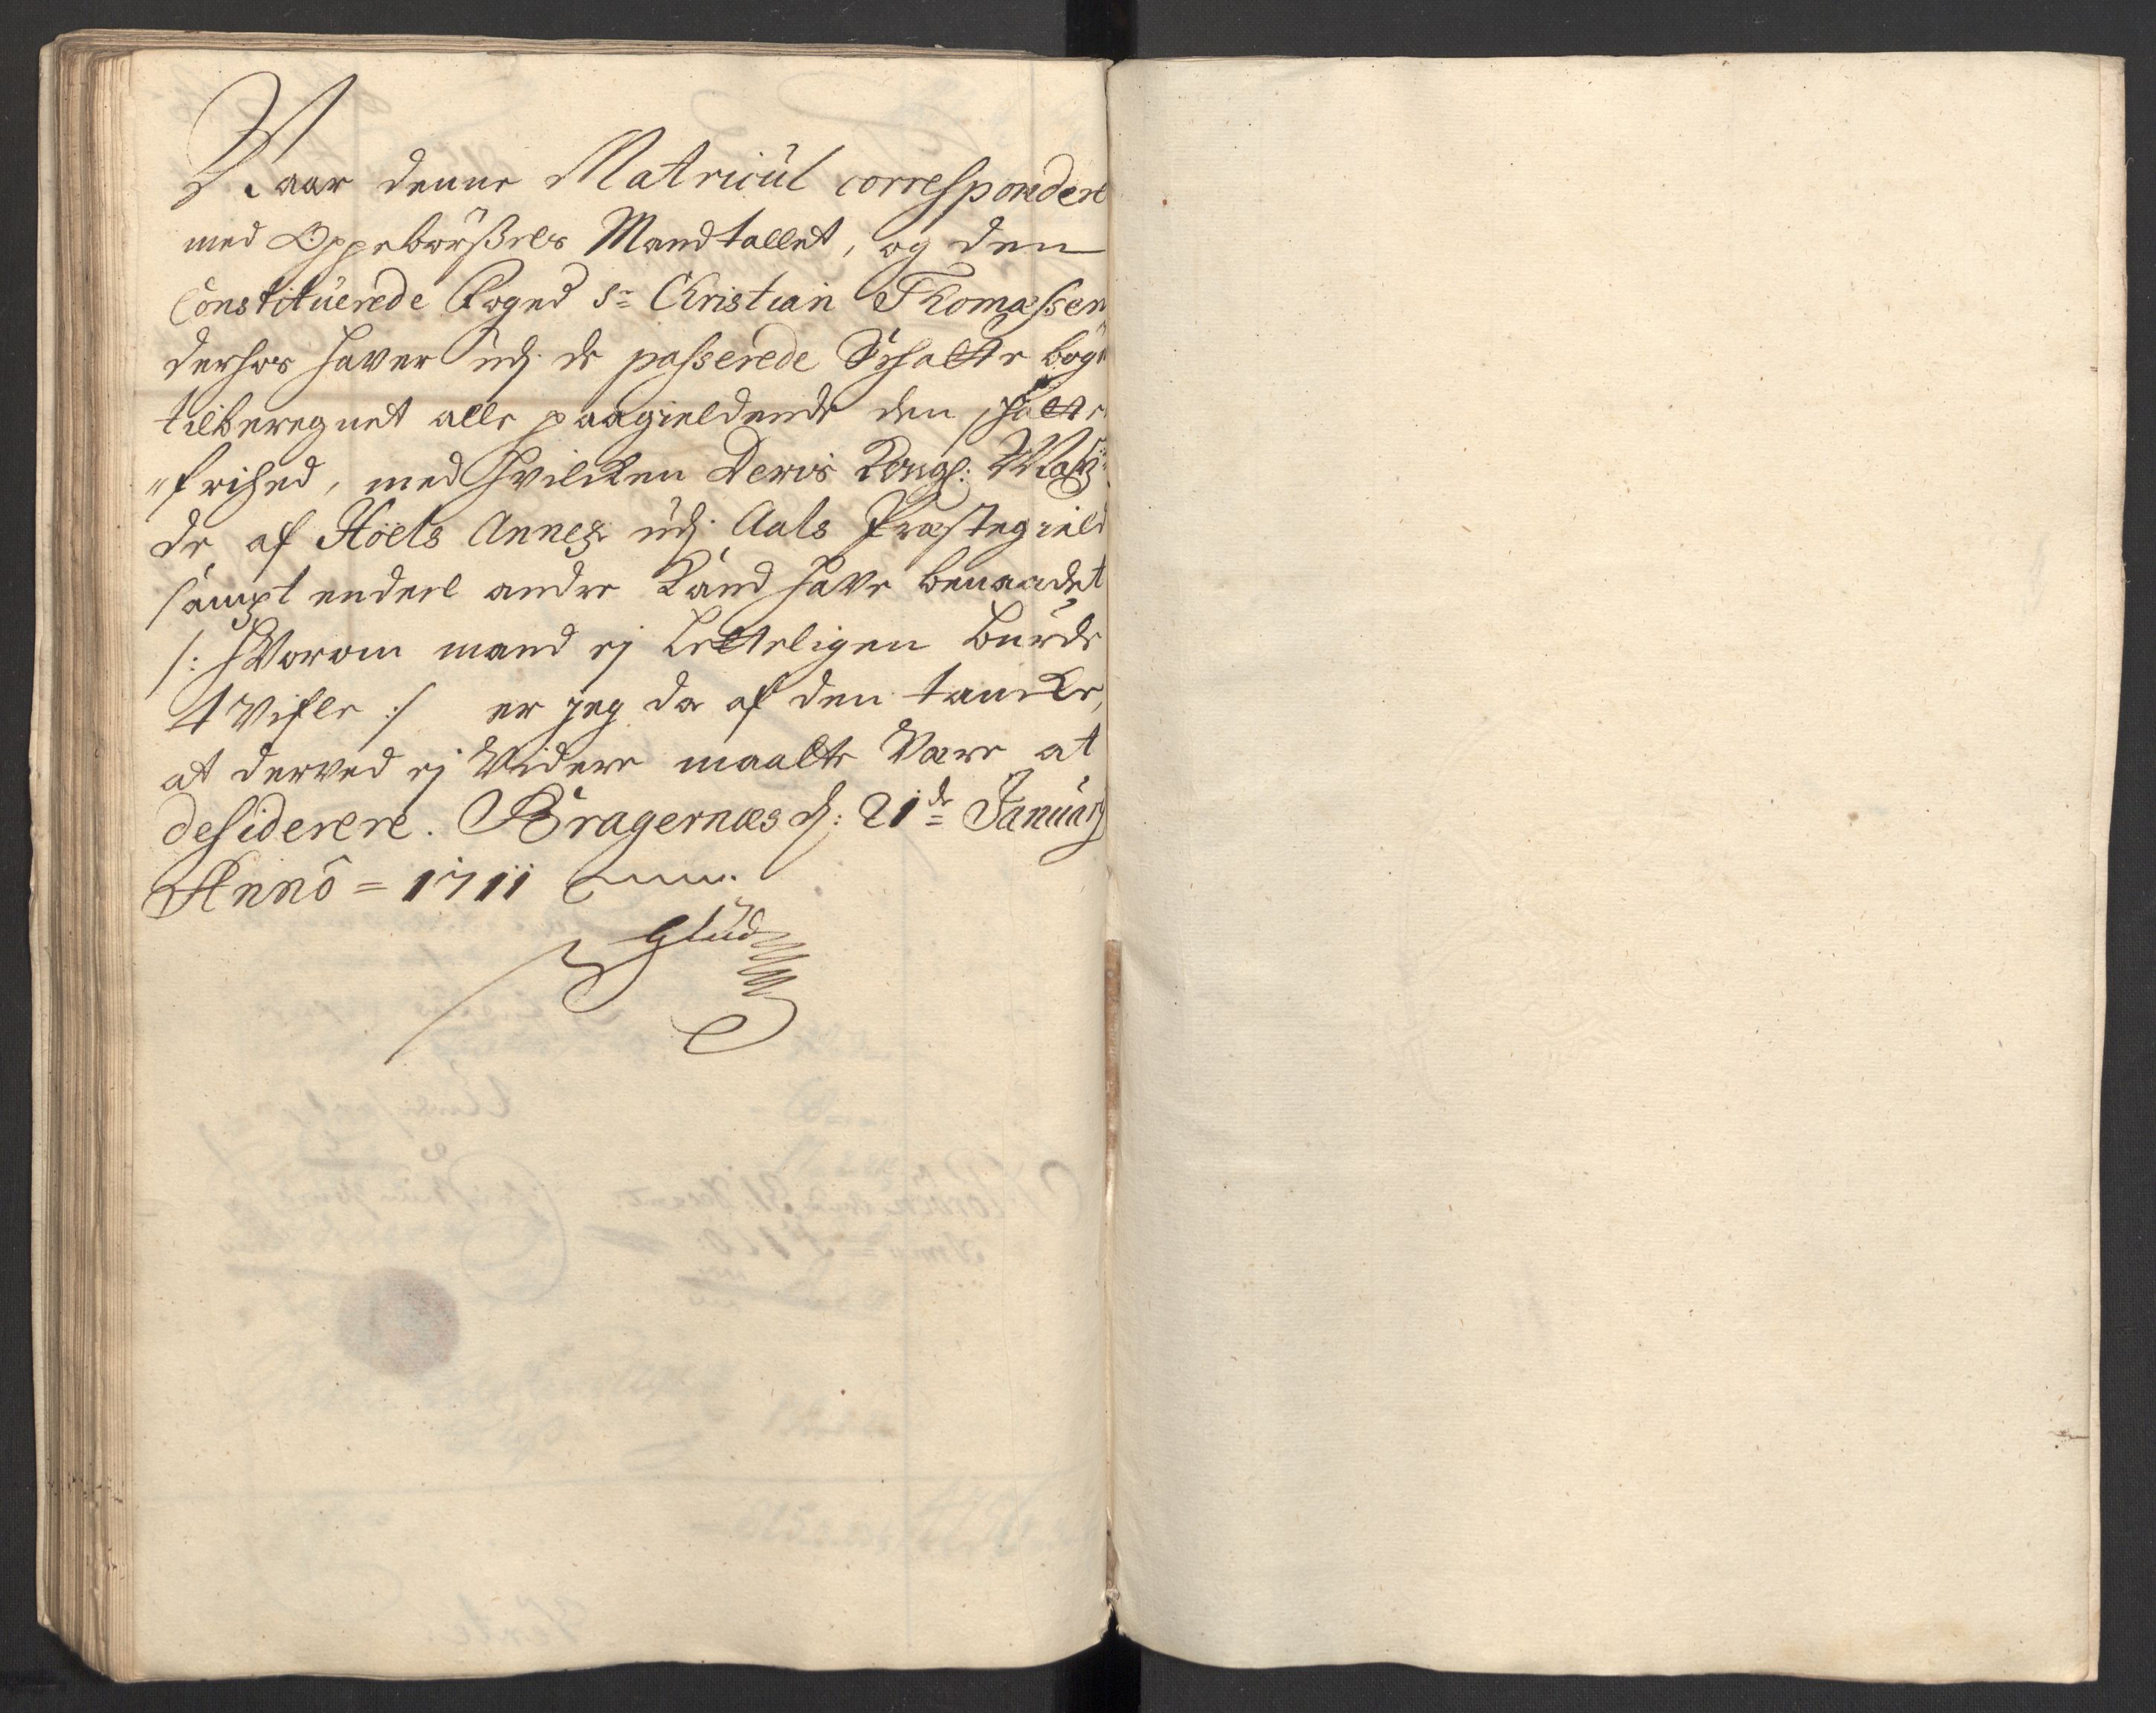 Naar denne Matricul correspondere
med Oppebørsels Mandtallet, og den
Constituerede Foged Sr Christian Thomassen
derhos haver udj de passerede Schatte bøg
tilberegnet alle paagieldende den schatte
"frihed, med hvilcken Deris Kongl: Mayt:
de af Høels Annex udj Aals Præstegield
sampt endeel andre Land have benaadet
/: Hvorom mand ej Letteligen burde
tvifle :/ er jeg da af den tancke,
at derved ej Videre maatte Være at
desiderere. Bragernæs d: 21de Januarj
Anno = 1711
Glud